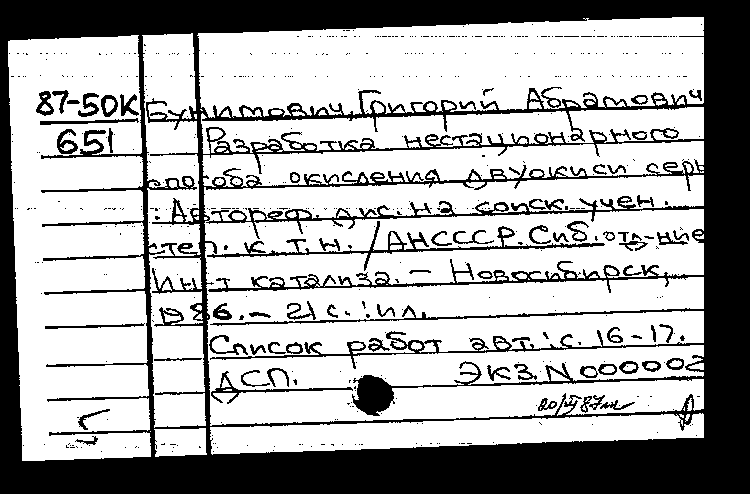 87-50К Бунимович, Григорий Абрамович
651 Разработка нестационарного
способа окисления двуокиси серы
: Автореф. дис. на соиск. учен.
степ. к. т. н. / АН СССР. Сиб. отд-ние
Ин-т катализа. – Новосибирск,
1986. – 21 с. : ил.
Список работ авт.: с. 16-17.
ДСП. Экз. N 000002